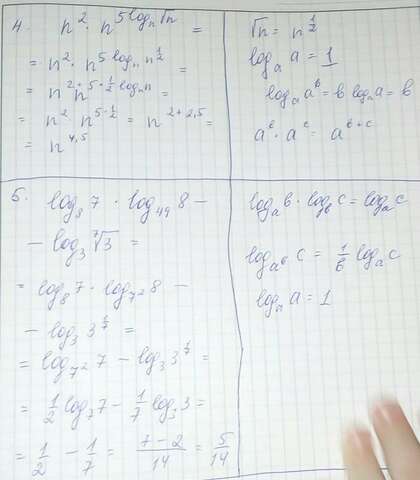 4. n² · n^(5 log_n √n) =
= n² · n^(5 log_n n^(1/2)) =
= n² n^(5 · 1/2 log_n n) =
= n² n^(5 · 1/2) = n^(2+2,5) =
= n^(4,5)
√n = n^(1/2)
log_a a = 1
log_a a^b = b log_a a = b
a^b · a^c = a^(b+c)
5. log_8 7 · log_49 8 −
− log_3 ⁷√3 =
= log_8 7 · log_(7²) 8 −
− log_3 3^(1/7) =
= log_(7²) 7 − log_3 3^(1/7) =
= 1/2 log_7 7 − 1/7 log_3 3 =
= 1/2 − 1/7 = (7−2)/14 = 5/14
log_a b · log_b c = log_a c
log_(a^b) c = 1/b log_a c
log_a a = 1